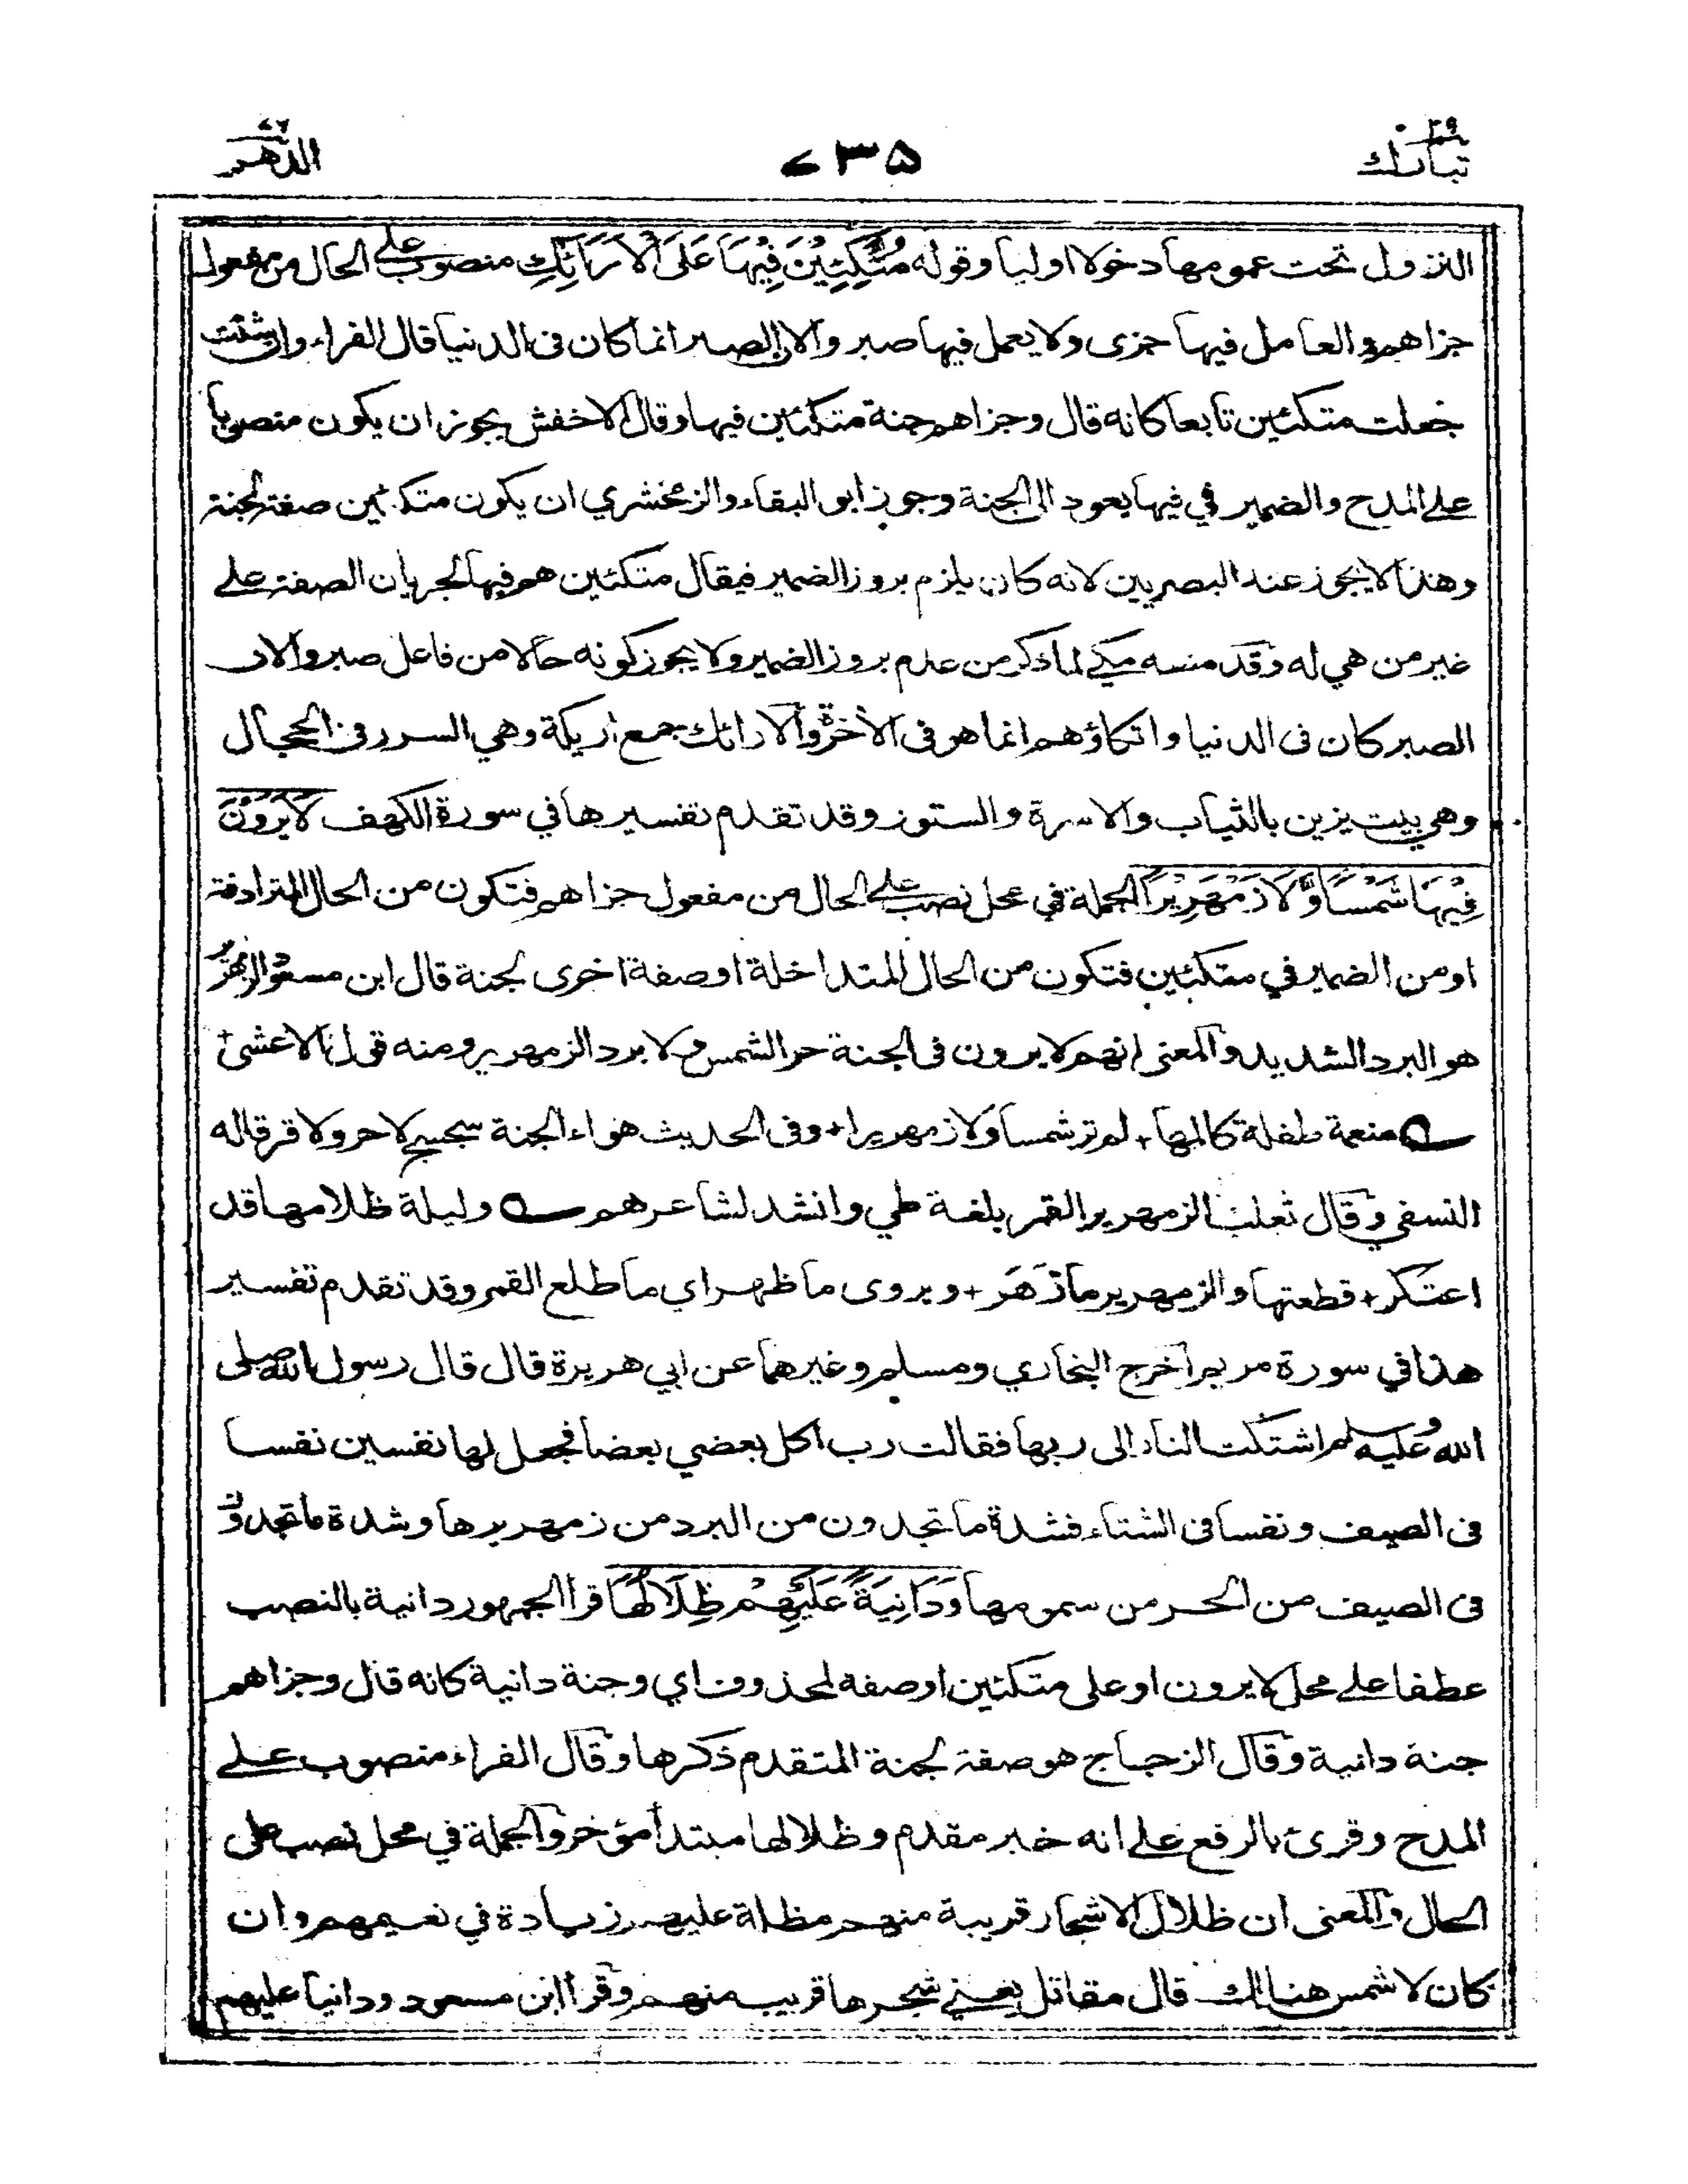 تبارك ٢٩
٣٥
الدهر ٧٦
النزول تحت عمومها دخولا اوليا وقوله مُتَّكِئِيْنَ فِيْهَا عَلَى الْأَرَائِكِ منصوب على الحال من مفعول
جزاهم والعامل فيها جزى ولا يعمل فيها صبر والان الصبر انما كان فى الدنيا قال الفراء وان شئت
جعلت متكئين تابعا كانه قال وجزاهم جنة متكئين فيها وقال الاخفش يجوز ان يكون منصوبا
على المدح والضمير في فيها يعود الى الجنة وجوز ابو البقاء والزمخشري ان يكون متكئين صفة لجنة
وهذا لا يجوز عند البصريين لانه كان يلزم بروز الضمير فيقال متكئين هم فيها لجريان الصفة على
غير من هي له وقد منعه مكي لما ذكر من عدم بروز الضمير ولا يجوز كونه حالا من فاعل صبروا لان
الصبر كان فى الدنيا واتكاؤهم انما هو فى الأخرة والارائك جمع اريكة وهي السرر فى الحجال
وهي بيت يزين بالثياب والاسرة والستور وقد تقدم تفسيرها في سورة الكهف لَا يَرَوْنَ
فِيْهَا شَمْسًا وَّلَا زَمْهَرِيْرًا الجملة في محل نصب على الحال من مفعول جزاهم فتكون من الحال المترادفة
او من الضمير في متكئين فتكون من الحال المتداخلة او صفة اخرى لجنة قال ابن مسعود الزمهرير
هو البرد الشديد والمعنى انهم لا يرون فى الجنة حر الشمس ولا برد الزمهرير ومنه قول الاعشى
منعمة طفلة كالمها + لم تر شمسا ولا زمهريرا + وفى الحديث هواء الجنة سجسج لا حر ولا قر قاله
النسفي وقال ثعلب الزمهرير القمر بلغة طي وانشد لشاعرهم وليلة ظلامها قد
اعتكر + قطعتها والزمهرير مَا زَهَر + ويروى ما ظهر اي ما طلع القمر وقد تقدم تفسير
هذا في سورة مريم اخرج البخاري ومسلم وغيرهما عن ابي هريرة قال قال رسول الله صلى
الله عليه وسلم اشتكت النار الى ربها فقالت رب اكل بعضي بعضا فجعل لها نفسين نفسا
فى الصيف ونفسا فى الشتاء فشدة ما تجدون من البرد من زمهريرها وشدة ما تجدون
فى الصيف من الحر من سمومها وَدَانِيَةً عَلَيْهِمْ ظِلَالُهَا قرأ الجمهور دانية بالنصب
عطفا على محل لا يرون او على متكئين او صفة لمحذوف اي وجنة دانية كانه قال وجزاهم
جنة دانية وقال الزجاج هو صفة لجنة المتقدم ذكرها وقال الفراء منصوب على
المدح وقرئ بالرفع على انه خبر مقدم وظلالها مبتدأ مؤخر والجملة في محل نصب على
الحال والمعنى ان ظلال الاشجار قريبة منهم مظلة عليهم زيادة في نعيمهم وان
كان لا شمس هنالك قال مقاتل يعني شجرها قريب منهم وقرأ ابن مسعود ودانيا عليهم